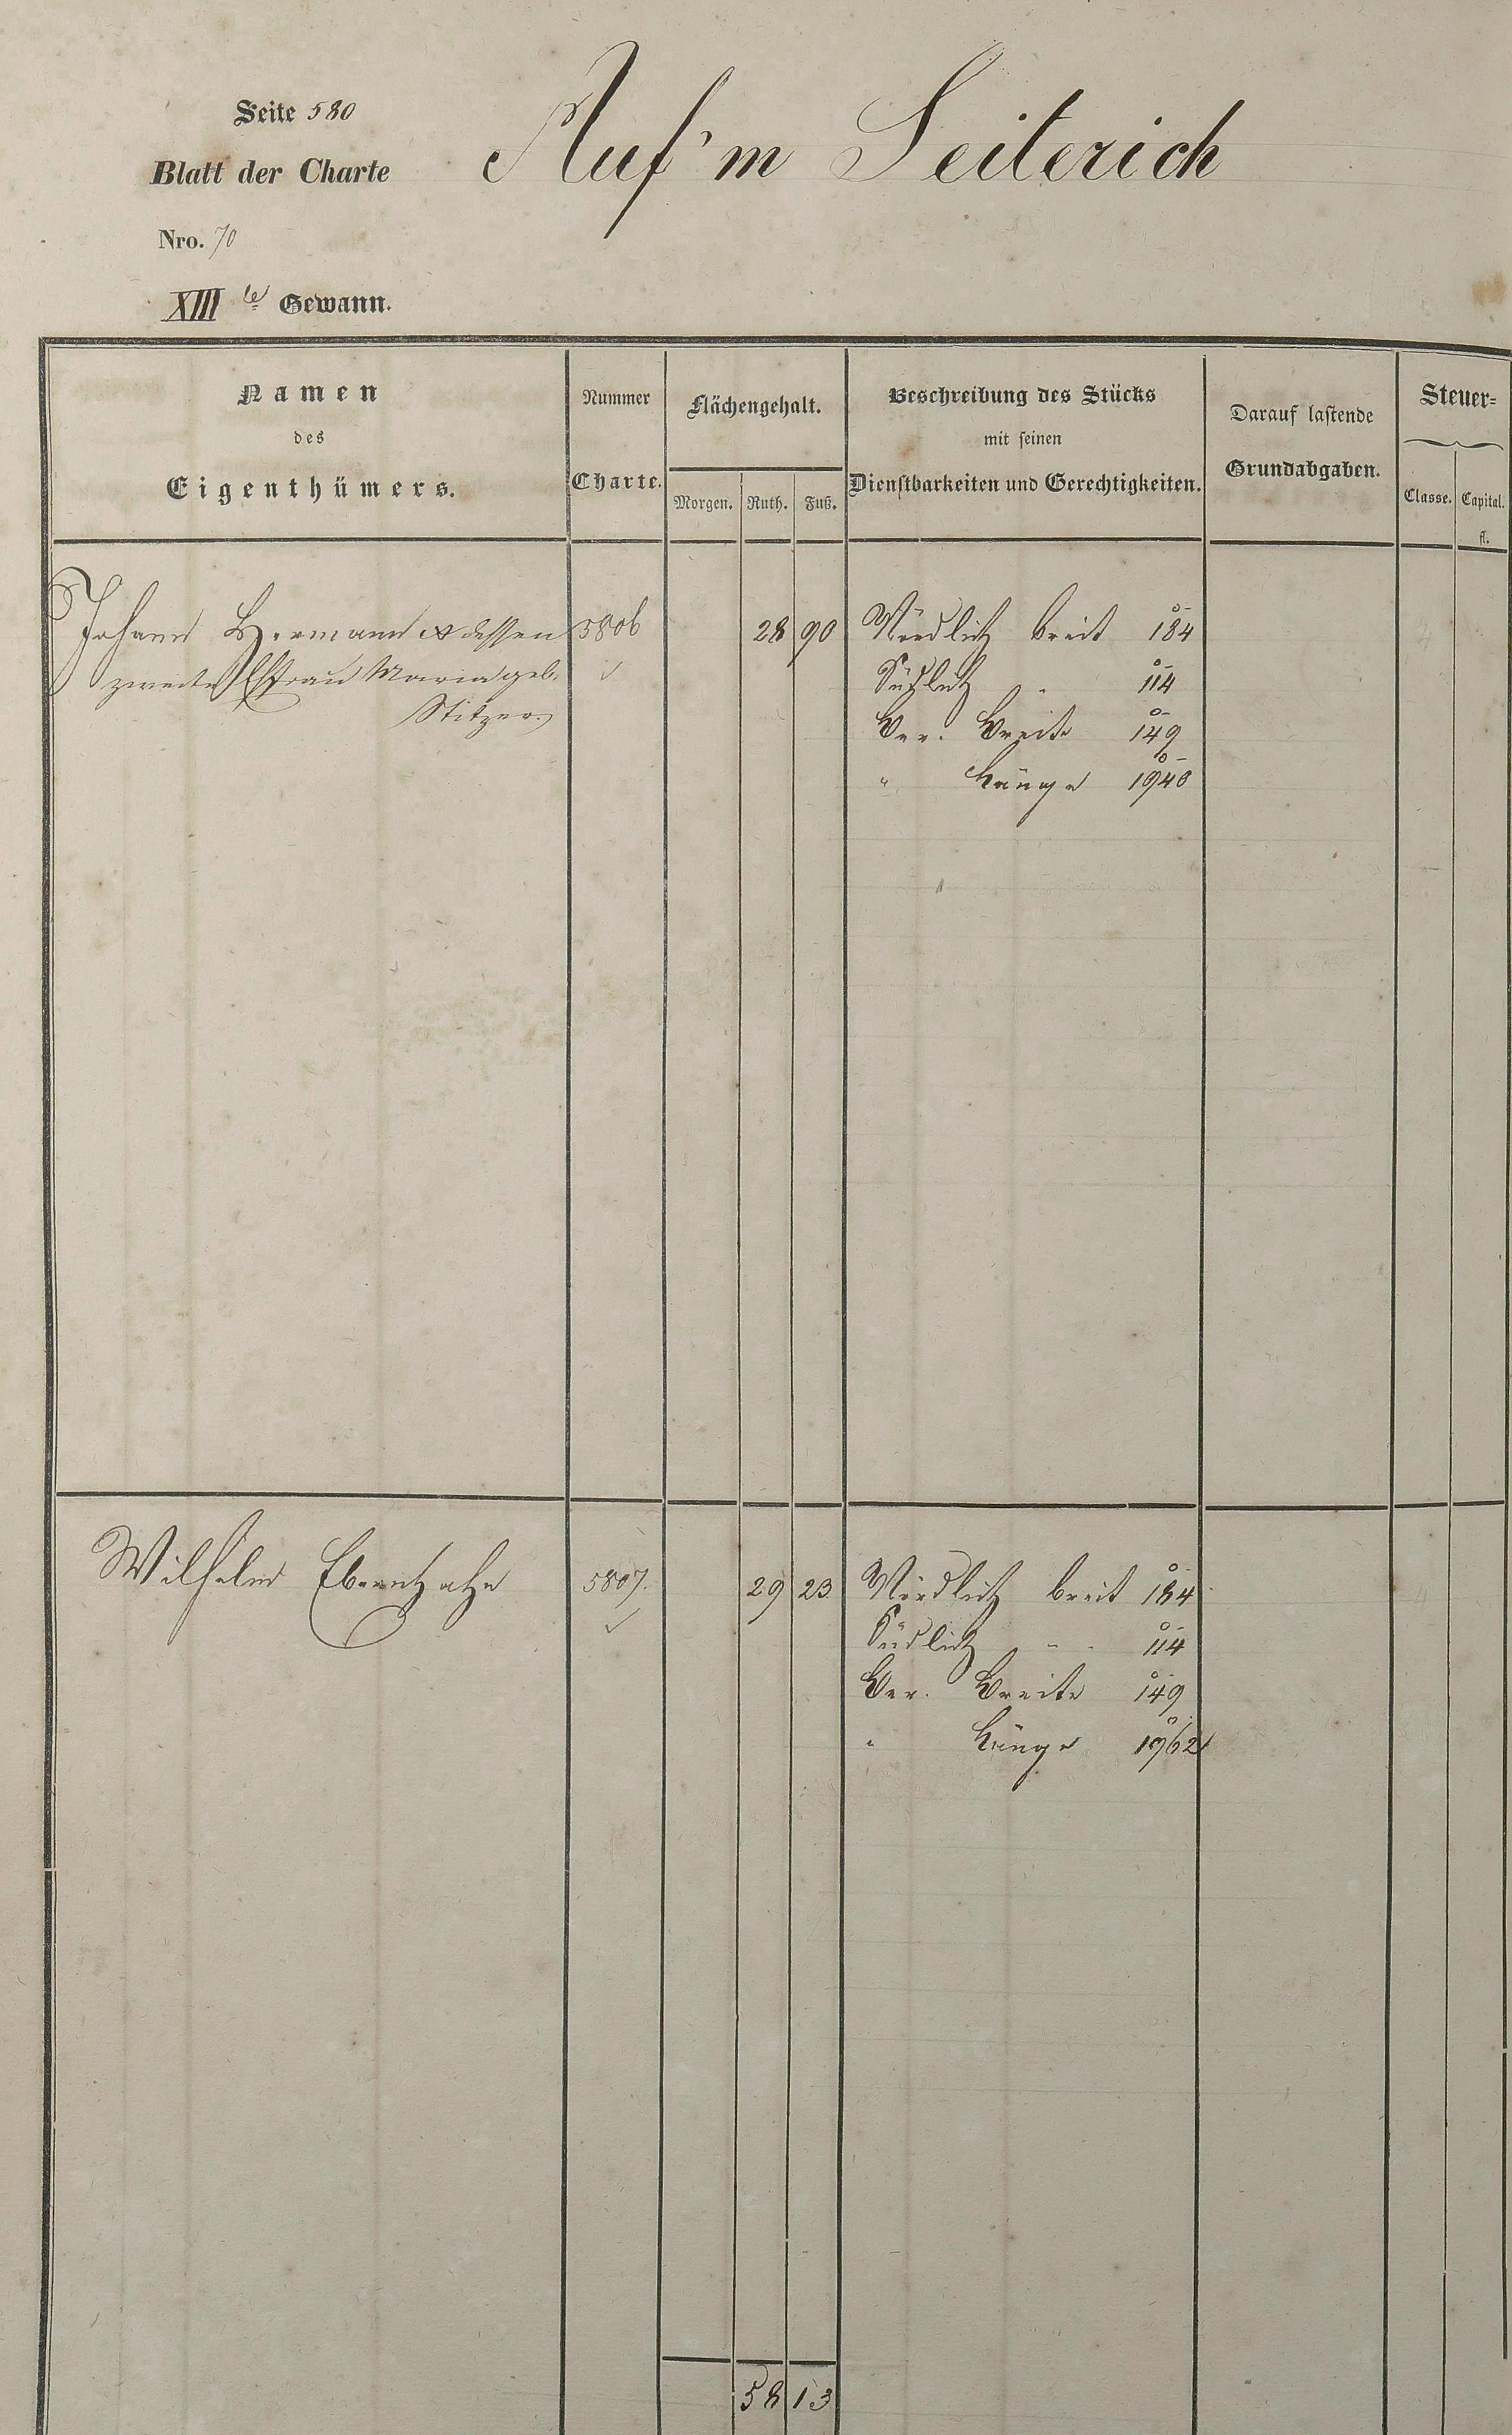 Seite 580
Auf'm Seiterich
Blatt der Charte
Nro. 70
XIII te Gewann.
Namen
des
Eigenthümers.
Nummer
Charte.
Flächengehalt.
Morgen. Ruth. Fuß.
Beschreibung des Stücks
mit seinen
Dienstbarkeiten und Gerechtigkeiten.
Darauf lastende
Grundabgaben.
Steuer-
Classe. Capital.
fl.
Johann Hermann & dessen 5806 28 90 Nördlich breit 184
zweite Ehefrau Maria geb. Südlich " 114
Stitzer. Ver. Breite 149
" Länge 1940
Wilhelm 5807. 29 23 Nördlich breit 184
Südlich " 114
Ver. Breite 149
" Länge 1962
58 13